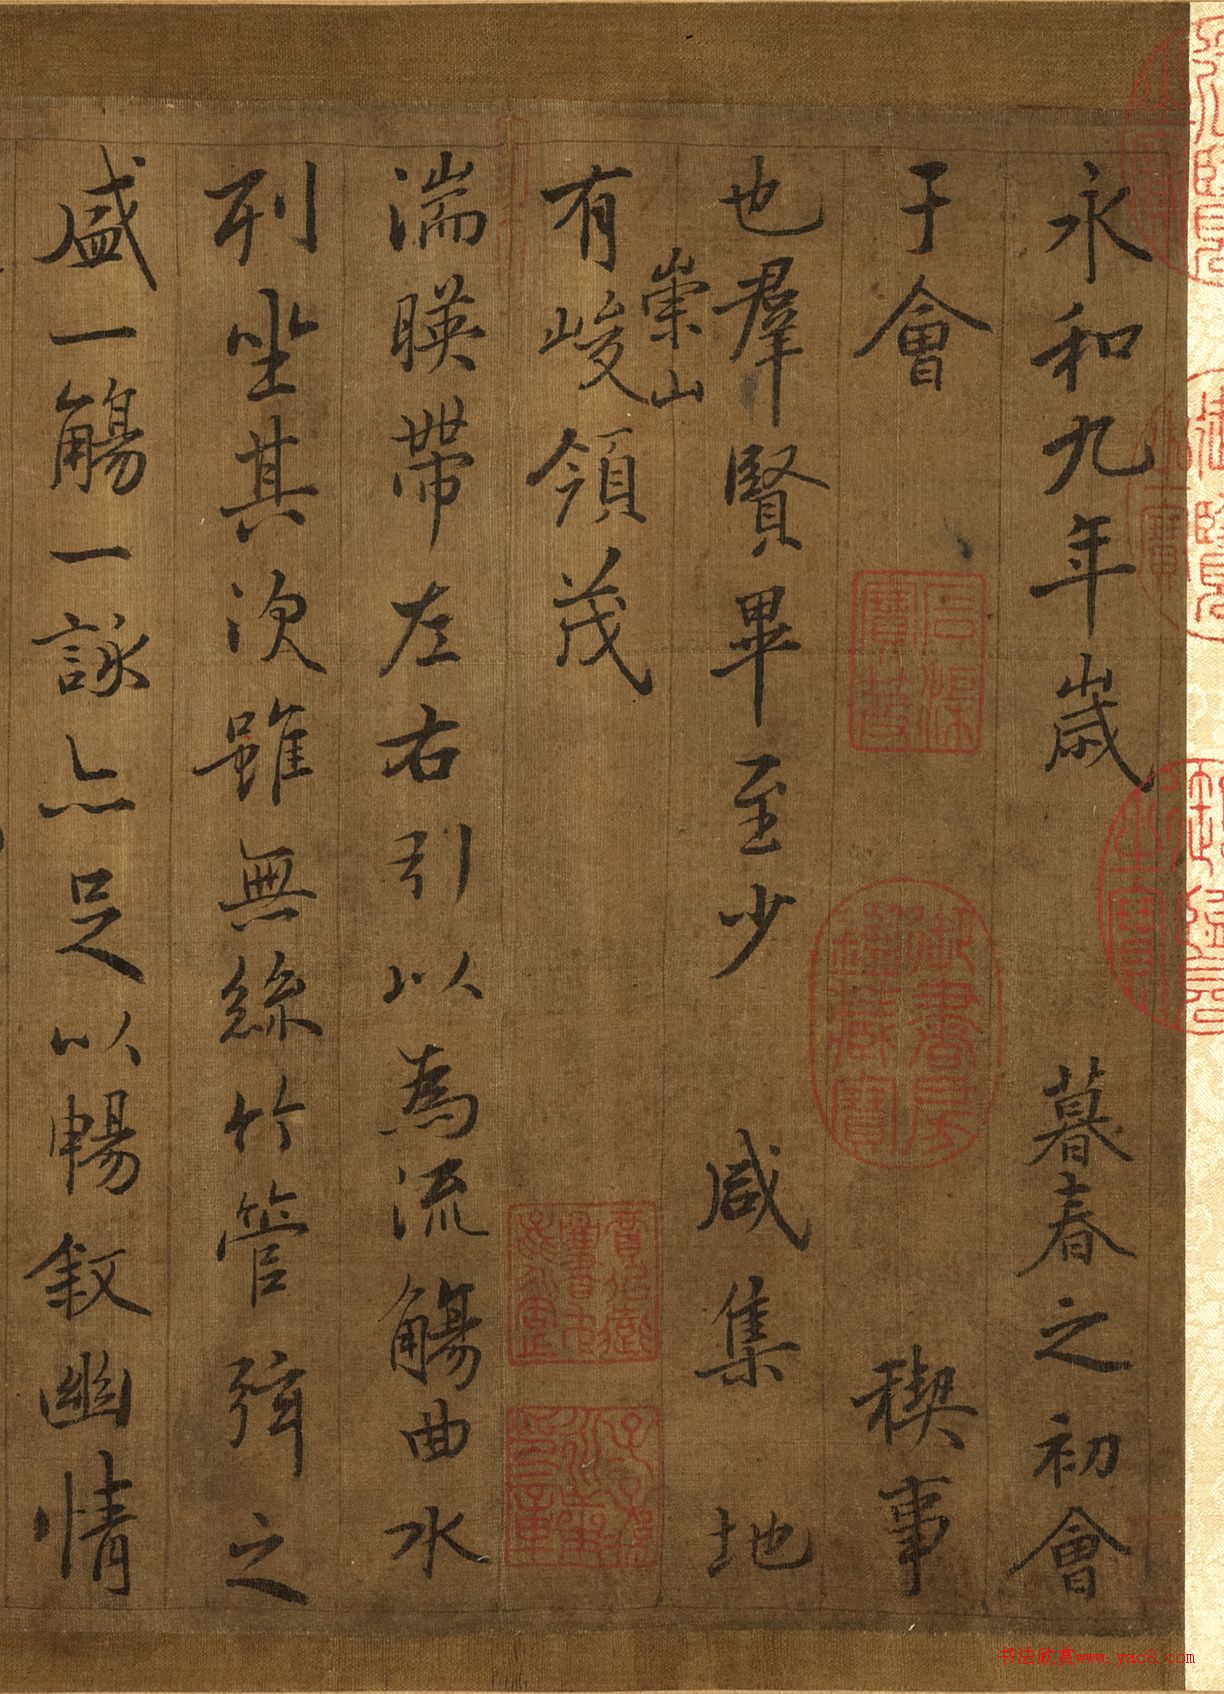 永和九年歲暮春之初會
于會稧事
也羣賢畢至少咸集地
崇山
有峻領茂
湍暎帶左右引以為流觴曲水
列坐其次雖無絲竹管弦之
盛一觴一詠亦足以暢敘幽情
石渠寶笈
御書房鑑藏寶
书法欣赏www.yac8.com